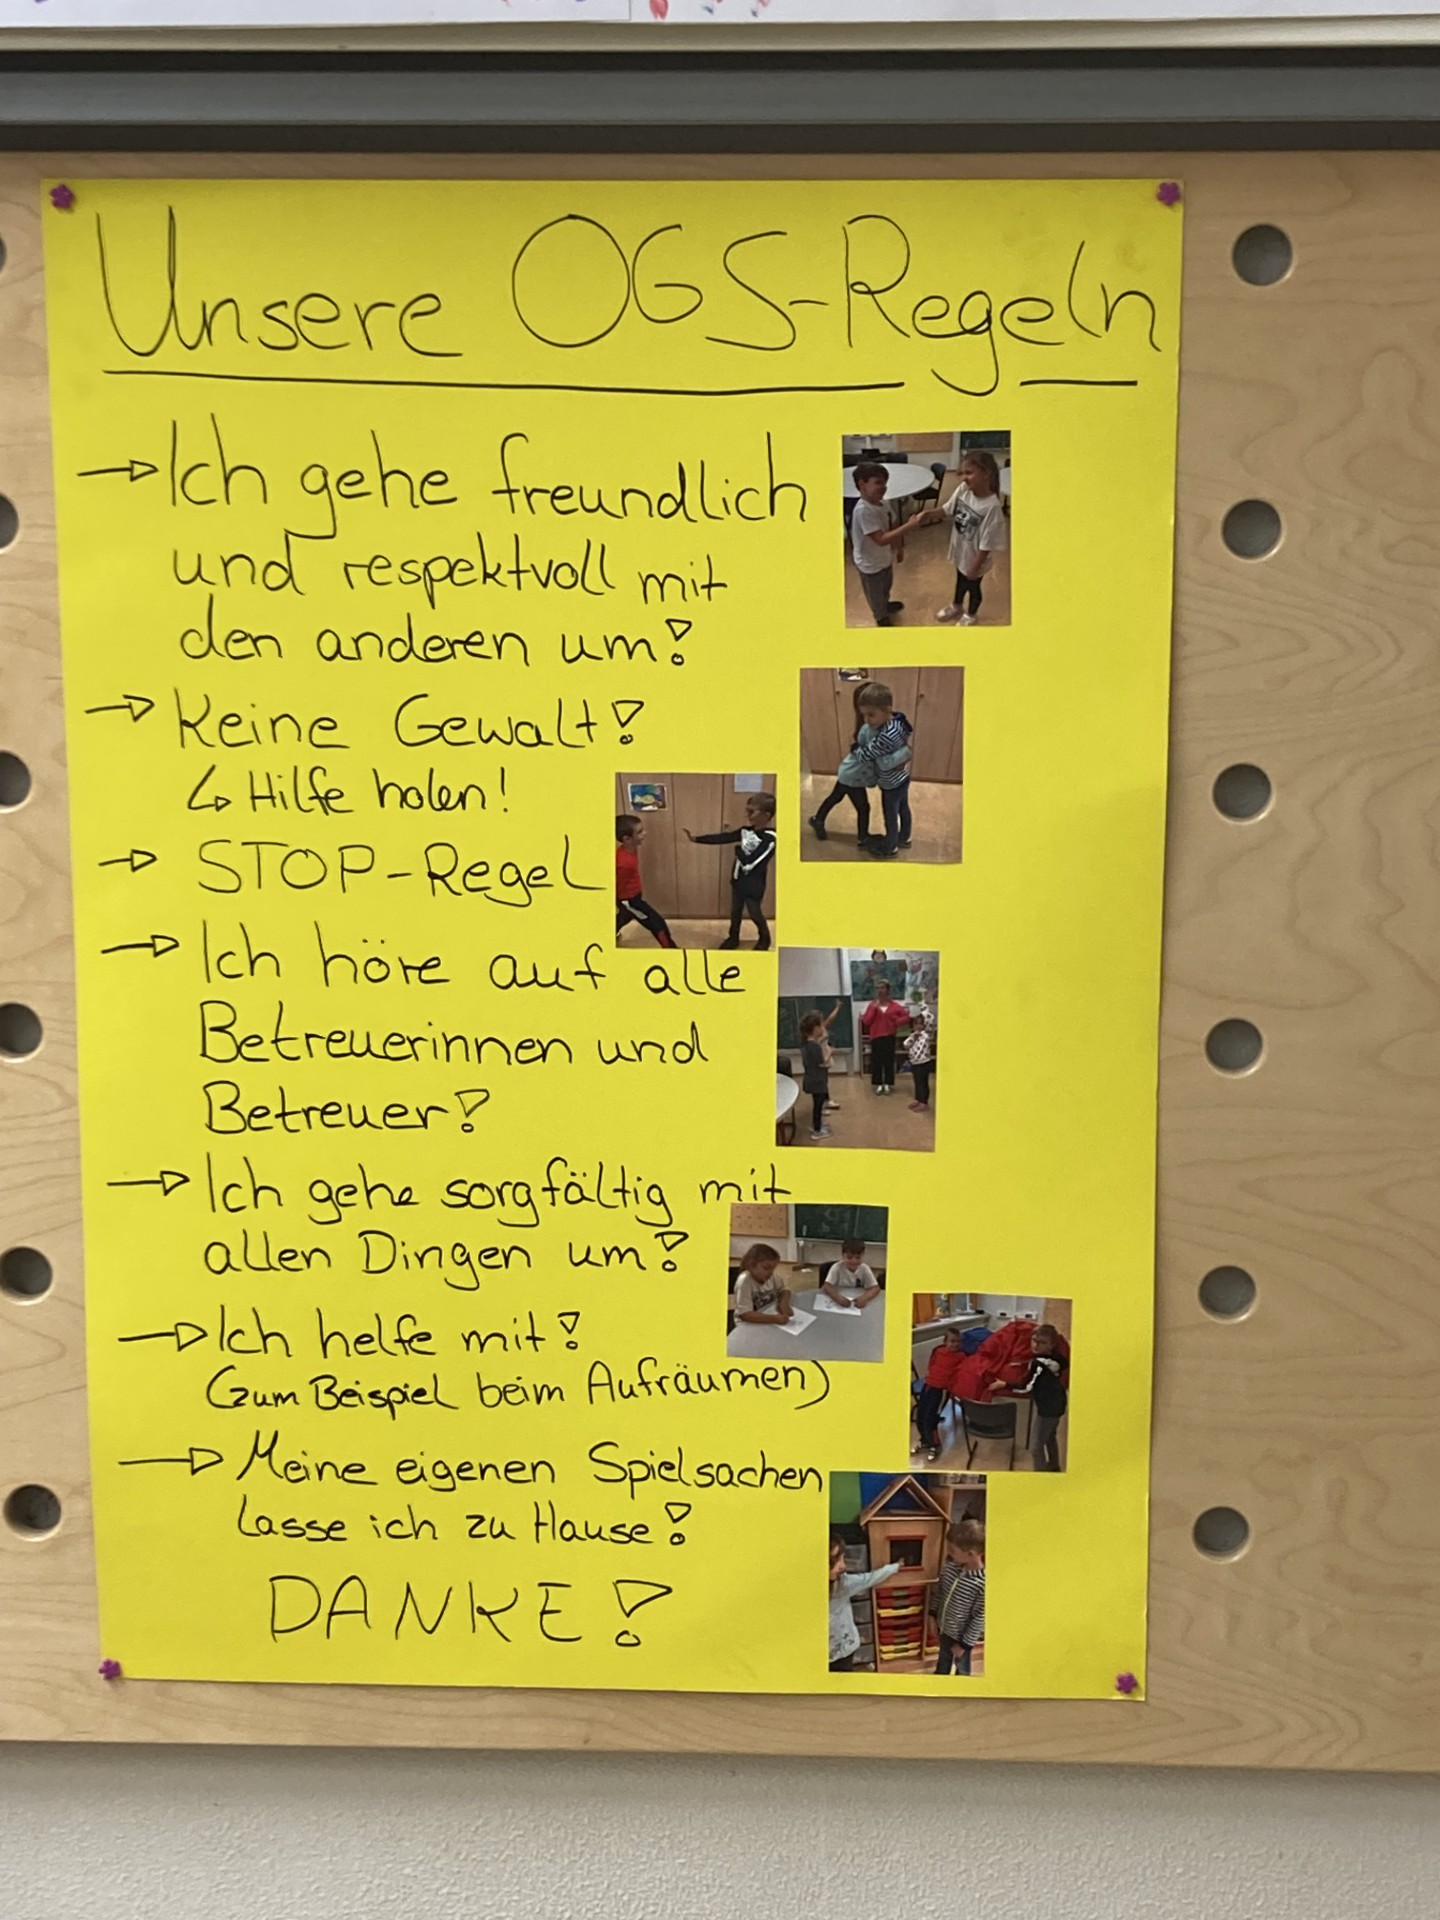 Unsere OGS-Regeln
→ Ich gehe freundlich
und respektvoll mit
den anderen um!
→ Keine Gewalt!
↳ Hilfe holen!
→ STOP-Regel
→ Ich höre auf alle
Betreuerinnen und
Betreuer!
→ Ich gehe sorgfältig mit
allen Dingen um!
→ Ich helfe mit!
(zum Beispiel beim Aufräumen)
→ Meine eigenen Spielsachen
lasse ich zu Hause!
DANKE!